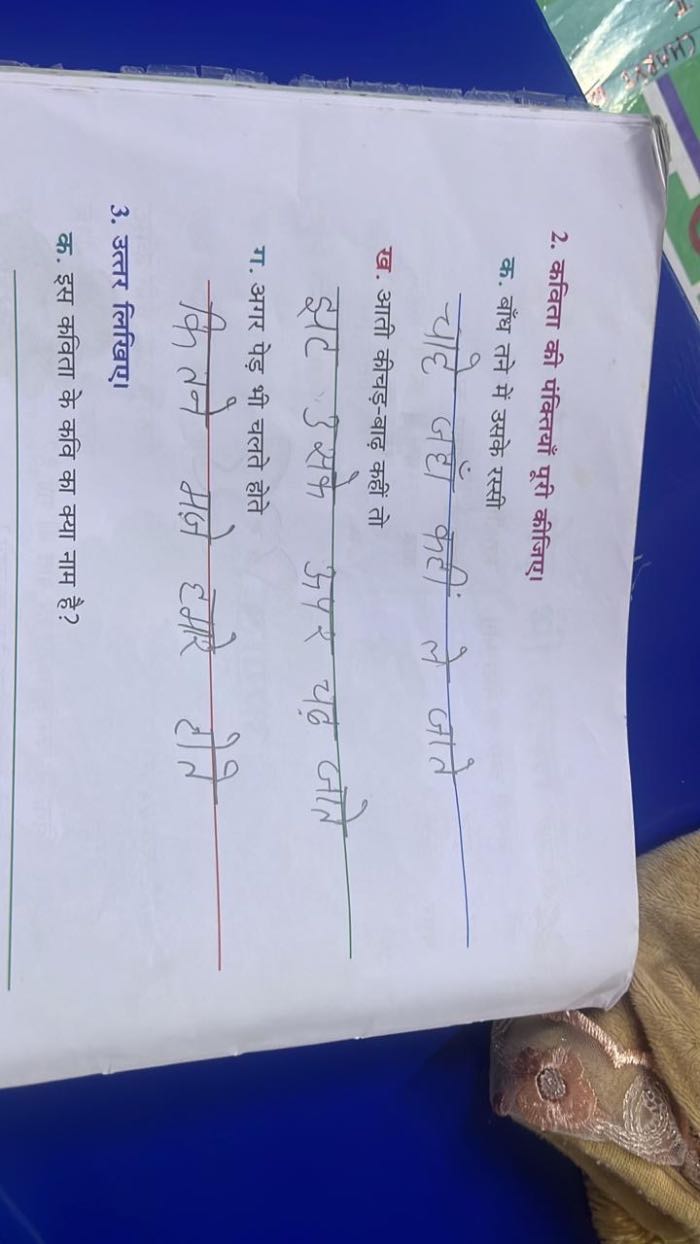 2. कविता की पंक्तियाँ पूरी कीजिए।
क. बाँध तने में उसके रस्सी
चाहे जहाँ कहीं ले जाते
ख. आती कीचड़-बाढ़ कहीं तो
झट उसके ऊपर चढ़ जाते
ग. अगर पेड़ भी चलते होते
कितने मज़े हमारे होते
3. उत्तर लिखिए।
क. इस कविता के कवि का क्या नाम है?